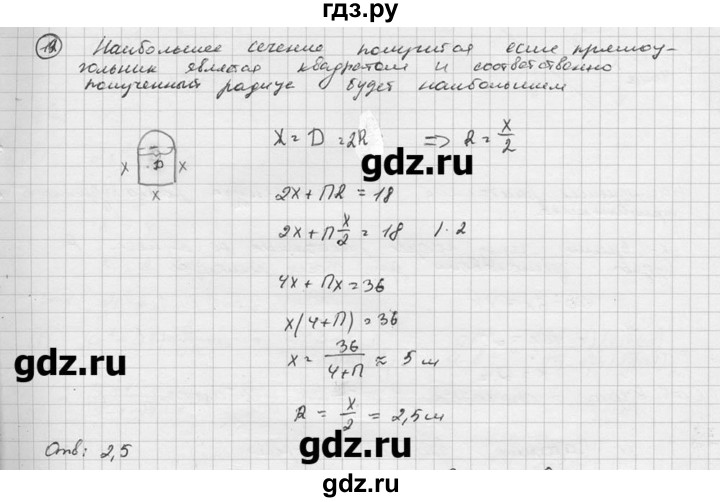 гдз.ру
12 Наибольшее сечение получится если прямоу-
гольник является квадратом и соответственно
полученный радиус будет наибольшим
x = D = 2R ⇒ R = x/2
x D x
x
gdz.ru
2x + ПR = 18
2x + П x/2 = 18 | · 2
4x + Пx = 36
x(4+П) = 36
gdz.ru
x = 36/(4+П) ≈ 5 м
R = x/2 = 2,5 м
gdz.ru
Отв: 2,5
гдз.ру